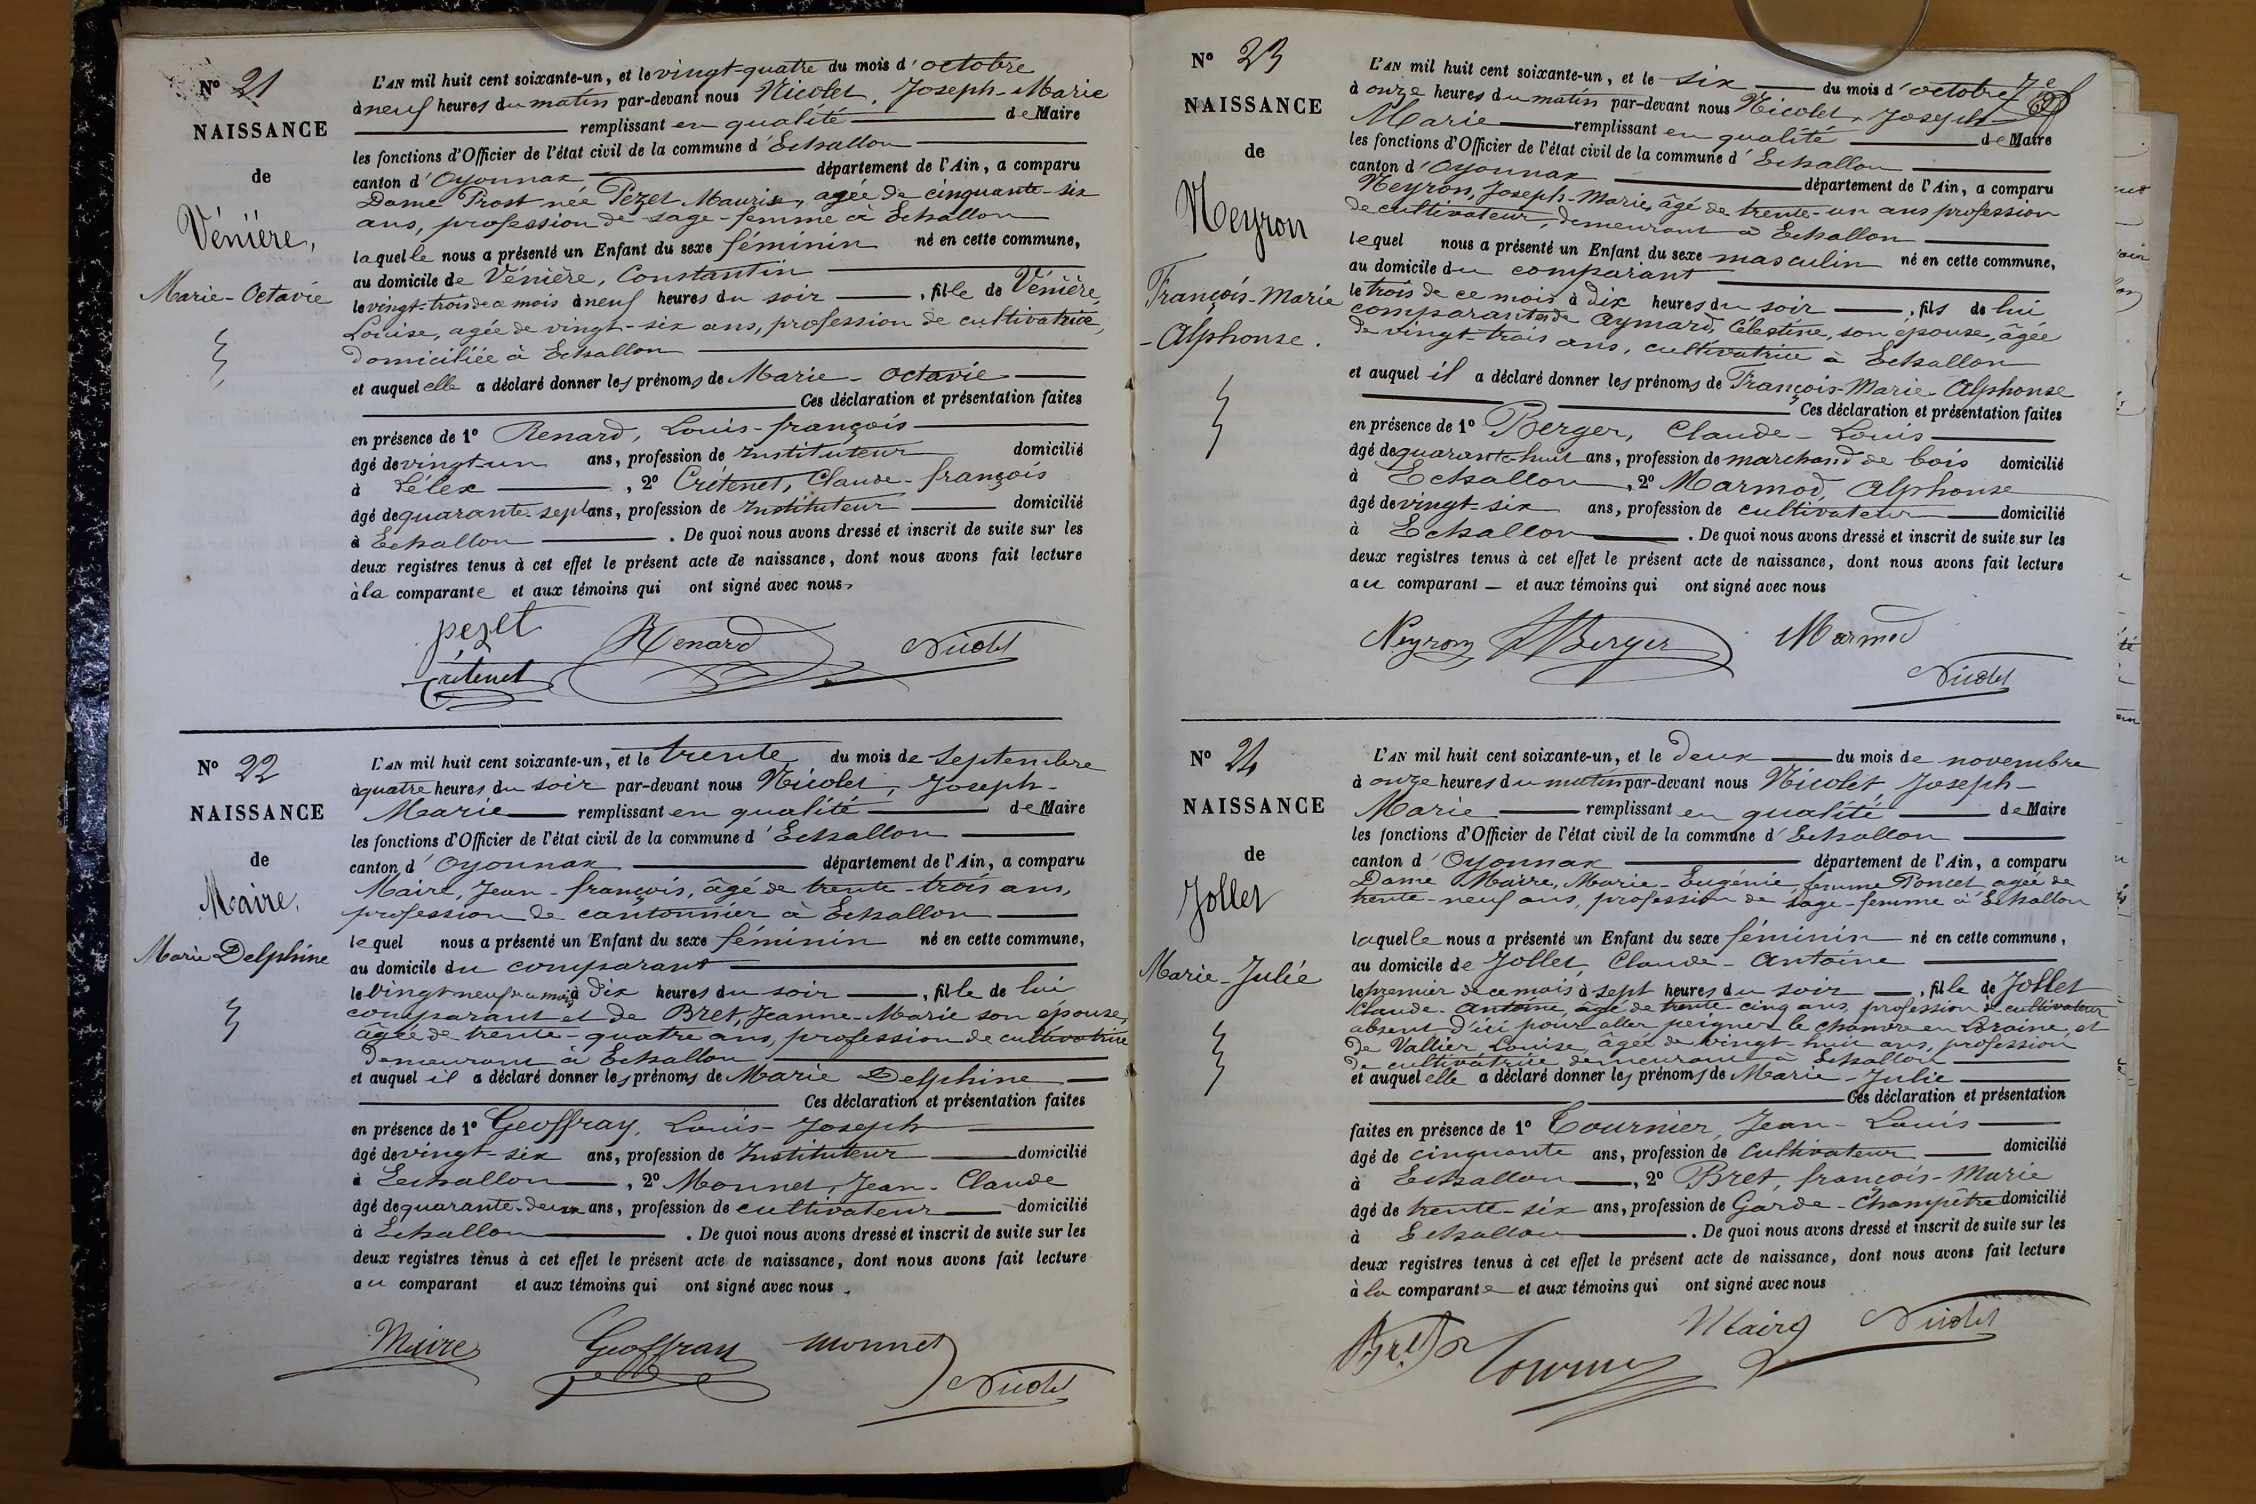 N° 21
NAISSANCE
de
Vénière,
Marie-Octavie
L'AN mil huit cent soixante-un, et le vingt-quatre du mois d'octobre
à neuf heures du matin par-devant nous Nicolet, Joseph-Marie
remplissant en qualité de Maire
les fonctions d'Officier de l'état civil de la commune d'Echallon
canton d'Oyonnax département de l'Ain, a comparu
Dame Prost née Pezet Maurise, agée de cinquante-six
ans, profession de sage-femme à Echallon
laquelle nous a présenté un Enfant du sexe féminin né en cette commune,
au domicile de Vénière, Constantin
le vingt-trois de ce mois à neuf heures du soir, fille de Vénière,
Louise, agée de vingt-six ans, profession de cultivatrice,
domiciliée à Echallon
et auquel elle a déclaré donner les prénoms de Marie-Octavie
Ces déclaration et présentation faites
en présence de 1° Renard, Louis-françois
âgé de vingt-un ans, profession de Instituteur domicilié
à Lélex, 2° Crétenet, Claude-françois
âgé de quarante-sept ans, profession de Instituteur domicilié
à Echallon. De quoi nous avons dressé et inscrit de suite sur les
deux registres tenus à cet effet le présent acte de naissance, dont nous avons fait lecture
à la comparante et aux témoins qui ont signé avec nous.
pezet Renard Nicolet
Crétenet
N° 22
NAISSANCE
de
Maire,
Marie Delphine
L'AN mil huit cent soixante-un, et le trente du mois de septembre
à quatre heures du soir par-devant nous Nicolet, Joseph-
Marie remplissant en qualité de Maire
les fonctions d'Officier de l'état civil de la commune d'Echallon
canton d'Oyonnax département de l'Ain, a comparu
Maire, Jean-françois, âgé de trente-trois ans,
profession de cantonnier à Echallon
lequel nous a présenté un Enfant du sexe féminin né en cette commune,
au domicile du comparant
le vingt-neuf de ce mois à dix heures du soir, fille de lui
comparant et de Bret, Jeanne-Marie son épouse,
âgée de trente-quatre ans, profession de cultivatrice
demeurant à Echallon
et auquel il a déclaré donner les prénoms de Marie Delphine
Ces déclaration et présentation faites
en présence de 1° Geoffray, Louis-Joseph
âgé de vingt-six ans, profession de Instituteur domicilié
à Echallon, 2° Monnet, Jean-Claude
âgé de quarante-deux ans, profession de cultivateur domicilié
à Echallon. De quoi nous avons dressé et inscrit de suite sur les
deux registres tenus à cet effet le présent acte de naissance, dont nous avons fait lecture
au comparant et aux témoins qui ont signé avec nous.
Maire Geoffray monnet
Nicolet
N° 23
NAISSANCE
de
Neyron
François-Marie
-Alphonse.
7e
L'AN mil huit cent soixante-un, et le six du mois d'octobre
à onze heures du matin par-devant nous Nicolet, Joseph-
Marie remplissant en qualité de Maire
les fonctions d'Officier de l'état civil de la commune d'Echallon
canton d'Oyonnax département de l'Ain, a comparu
Neyron, Joseph-Marie, âgé de trente-un ans profession
de cultivateur, demeurant à Echallon
lequel nous a présenté un Enfant du sexe masculin né en cette commune,
au domicile du comparant
le trois de ce mois à dix heures du soir, fils de lui
comparant et de Aymard, Célestine, son épouse, âgée
de vingt-trois ans, cultivatrice à Echallon
et auquel il a déclaré donner les prénoms de François-Marie-Alphonse
Ces déclaration et présentation faites
en présence de 1° Berger, Claude-Louis
âgé de quarante-huit ans, profession de marchand de bois domicilié
à Echallon, 2° Marmod, Alphonse
âgé de vingt-six ans, profession de cultivateur domicilié
à Echallon. De quoi nous avons dressé et inscrit de suite sur les
deux registres tenus à cet effet le présent acte de naissance, dont nous avons fait lecture
au comparant et aux témoins qui ont signé avec nous
Neyron Berger Marmod
Nicolet
N° 24
NAISSANCE
de
Jollet
Marie-Julie
L'AN mil huit cent soixante-un, et le deux du mois de novembre
à onze heures du matin par-devant nous Nicolet, Joseph-
Marie remplissant en qualité de Maire
les fonctions d'Officier de l'état civil de la commune d'Echallon
canton d'Oyonnax département de l'Ain, a comparu
Dame Maire, Marie-Eugénie, femme Poncet agée de
trente-neuf ans, profession de sage-femme à Echallon
laquelle nous a présenté un Enfant du sexe féminin né en cette commune,
au domicile de Jollet, Claude-Antoine
le premier de ce mois à sept heures du soir, fille de Jollet
Claude-Antoine, âgé de trente-cinq ans, profession de cultivateur
absent d'ici pour aller peigner le chanvre en Loraine, et
de Vallier Louise, âgée de vingt-huit ans, profession
de cultivatrice demeurant à Echallon
et auquel elle a déclaré donner les prénoms de Marie-Julie
Ces déclaration et présentation
faites en présence de 1° Tournier, Jean-Louis
âgé de cinquante ans, profession de Cultivateur domicilié
à Echallon, 2° Bret, françois-Marie
âgé de trente-six ans, profession de Garde-Champêtre domicilié
à Echallon. De quoi nous avons dressé et inscrit de suite sur les
deux registres tenus à cet effet le présent acte de naissance, dont nous avons fait lecture
à la comparante et aux témoins qui ont signé avec nous
Bret Tournier Maire Nicolet